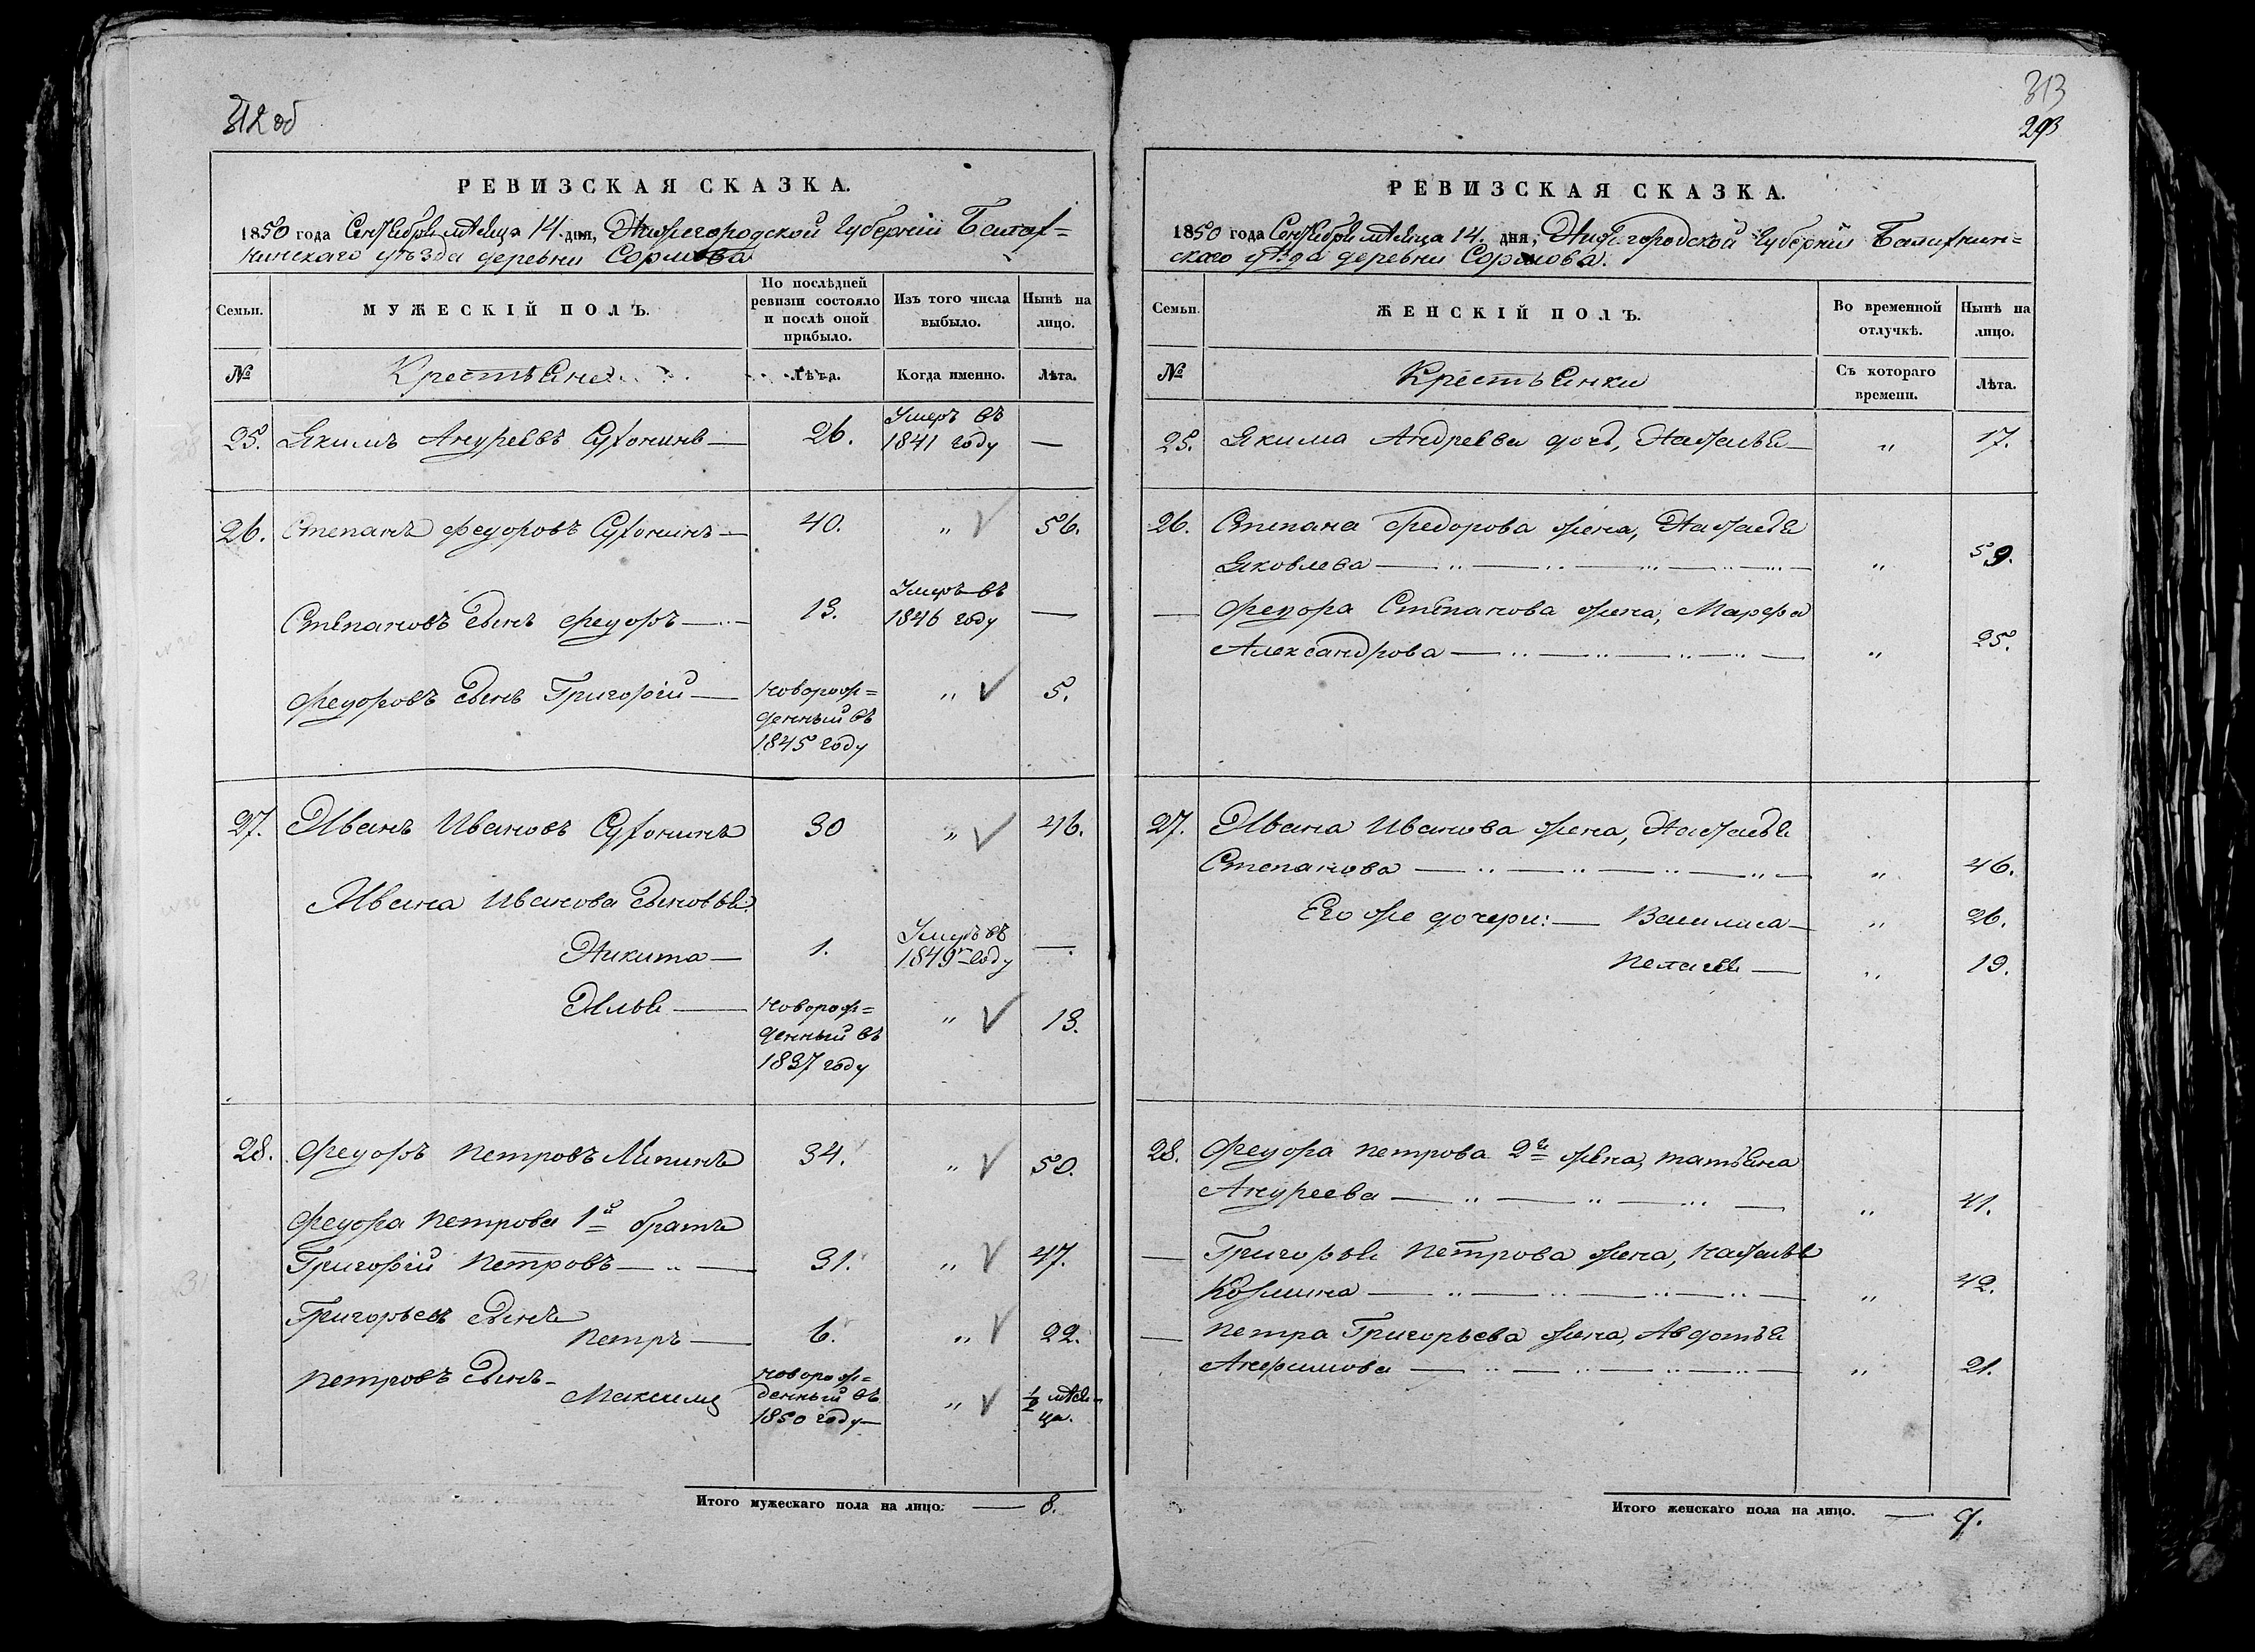 312 об
РЕВИЗСКАЯ СКАЗКА.
1850 года Сентября мѣсяца 14. дня, Нижегородской Губерніи Балах=
нинскаго уѣзда деревни Сормова
Семьи.
МУЖЕСКІЙ ПОЛЪ.
По послѣдней ревизіи состояло и послѣ оной прибыло.
Изъ того числа выбыло.
Нынѣ на лицо.
№
Крестьяне
Лѣта.
Когда именно.
Лѣта.
25. Якимъ Андреевъ Сутонинъ — 26. Умеръ въ
1841 году —
26. Степанъ Федоровъ Сутонинъ — 40. „ 56.
Степановъ сынъ Федоръ — 13. Умеръ въ
1846 году —
Федоровъ сынъ Григорій — новорож=
денный въ
1845 году „ 5.
27. Иванъ Ивановъ Сутонинъ 30 „ 46.
Ивана Иванова сыновья:
Никита — 1. Умеръ въ
1849м году —
Илья — новорож=
денный въ
1837 году „ 13.
28. Федоръ Петровъ Ляпинъ 34. „ 50.
Федора Петрова 1й братъ
Григорій Петровъ — 31. „ 47.
Григорьевъ сынъ
Петръ — 6. „ 22.
Петровъ сынъ-
Максимъ новорож=
денный въ
1850 году — „ ½ мѣся-
ца.
Итого мужескаго пола на лицо. — 8.
313
293
РЕВИЗСКАЯ СКАЗКА.
1850 года Сентября мѣсяца 14. дня, Нижегородской Губерніи Балахнин=
скаго уѣзда деревни Сормова.
Семьи.
ЖЕНСКІЙ ПОЛЪ.
Во временной отлучкѣ.
Нынѣ на лицо.
№
Крестьянки
Съ котораго времени.
Лѣта.
25. Якима Андреева дочь, Наталья — „ 17.
26. Степана Федорова жена, Наталья
Яковлева — „ 59.
— Федора Степанова жена, Марфа
Александрова — „ 25.
27. Ивана Иванова жена, Наталья
Степанова — „ 46.
Его же дочери: — Василиса — „ 26.
Пелагея — „ 19.
28. Федора Петрова 2я жена, Татьяна
Андреева — „ 41.
— Григорья Петрова жена, Наталья
Козмина — „ 42.
— Петра Григорьева жена, Авдотья
Анфимова — „ 21.
Итого женскаго пола на лицо. — 9.